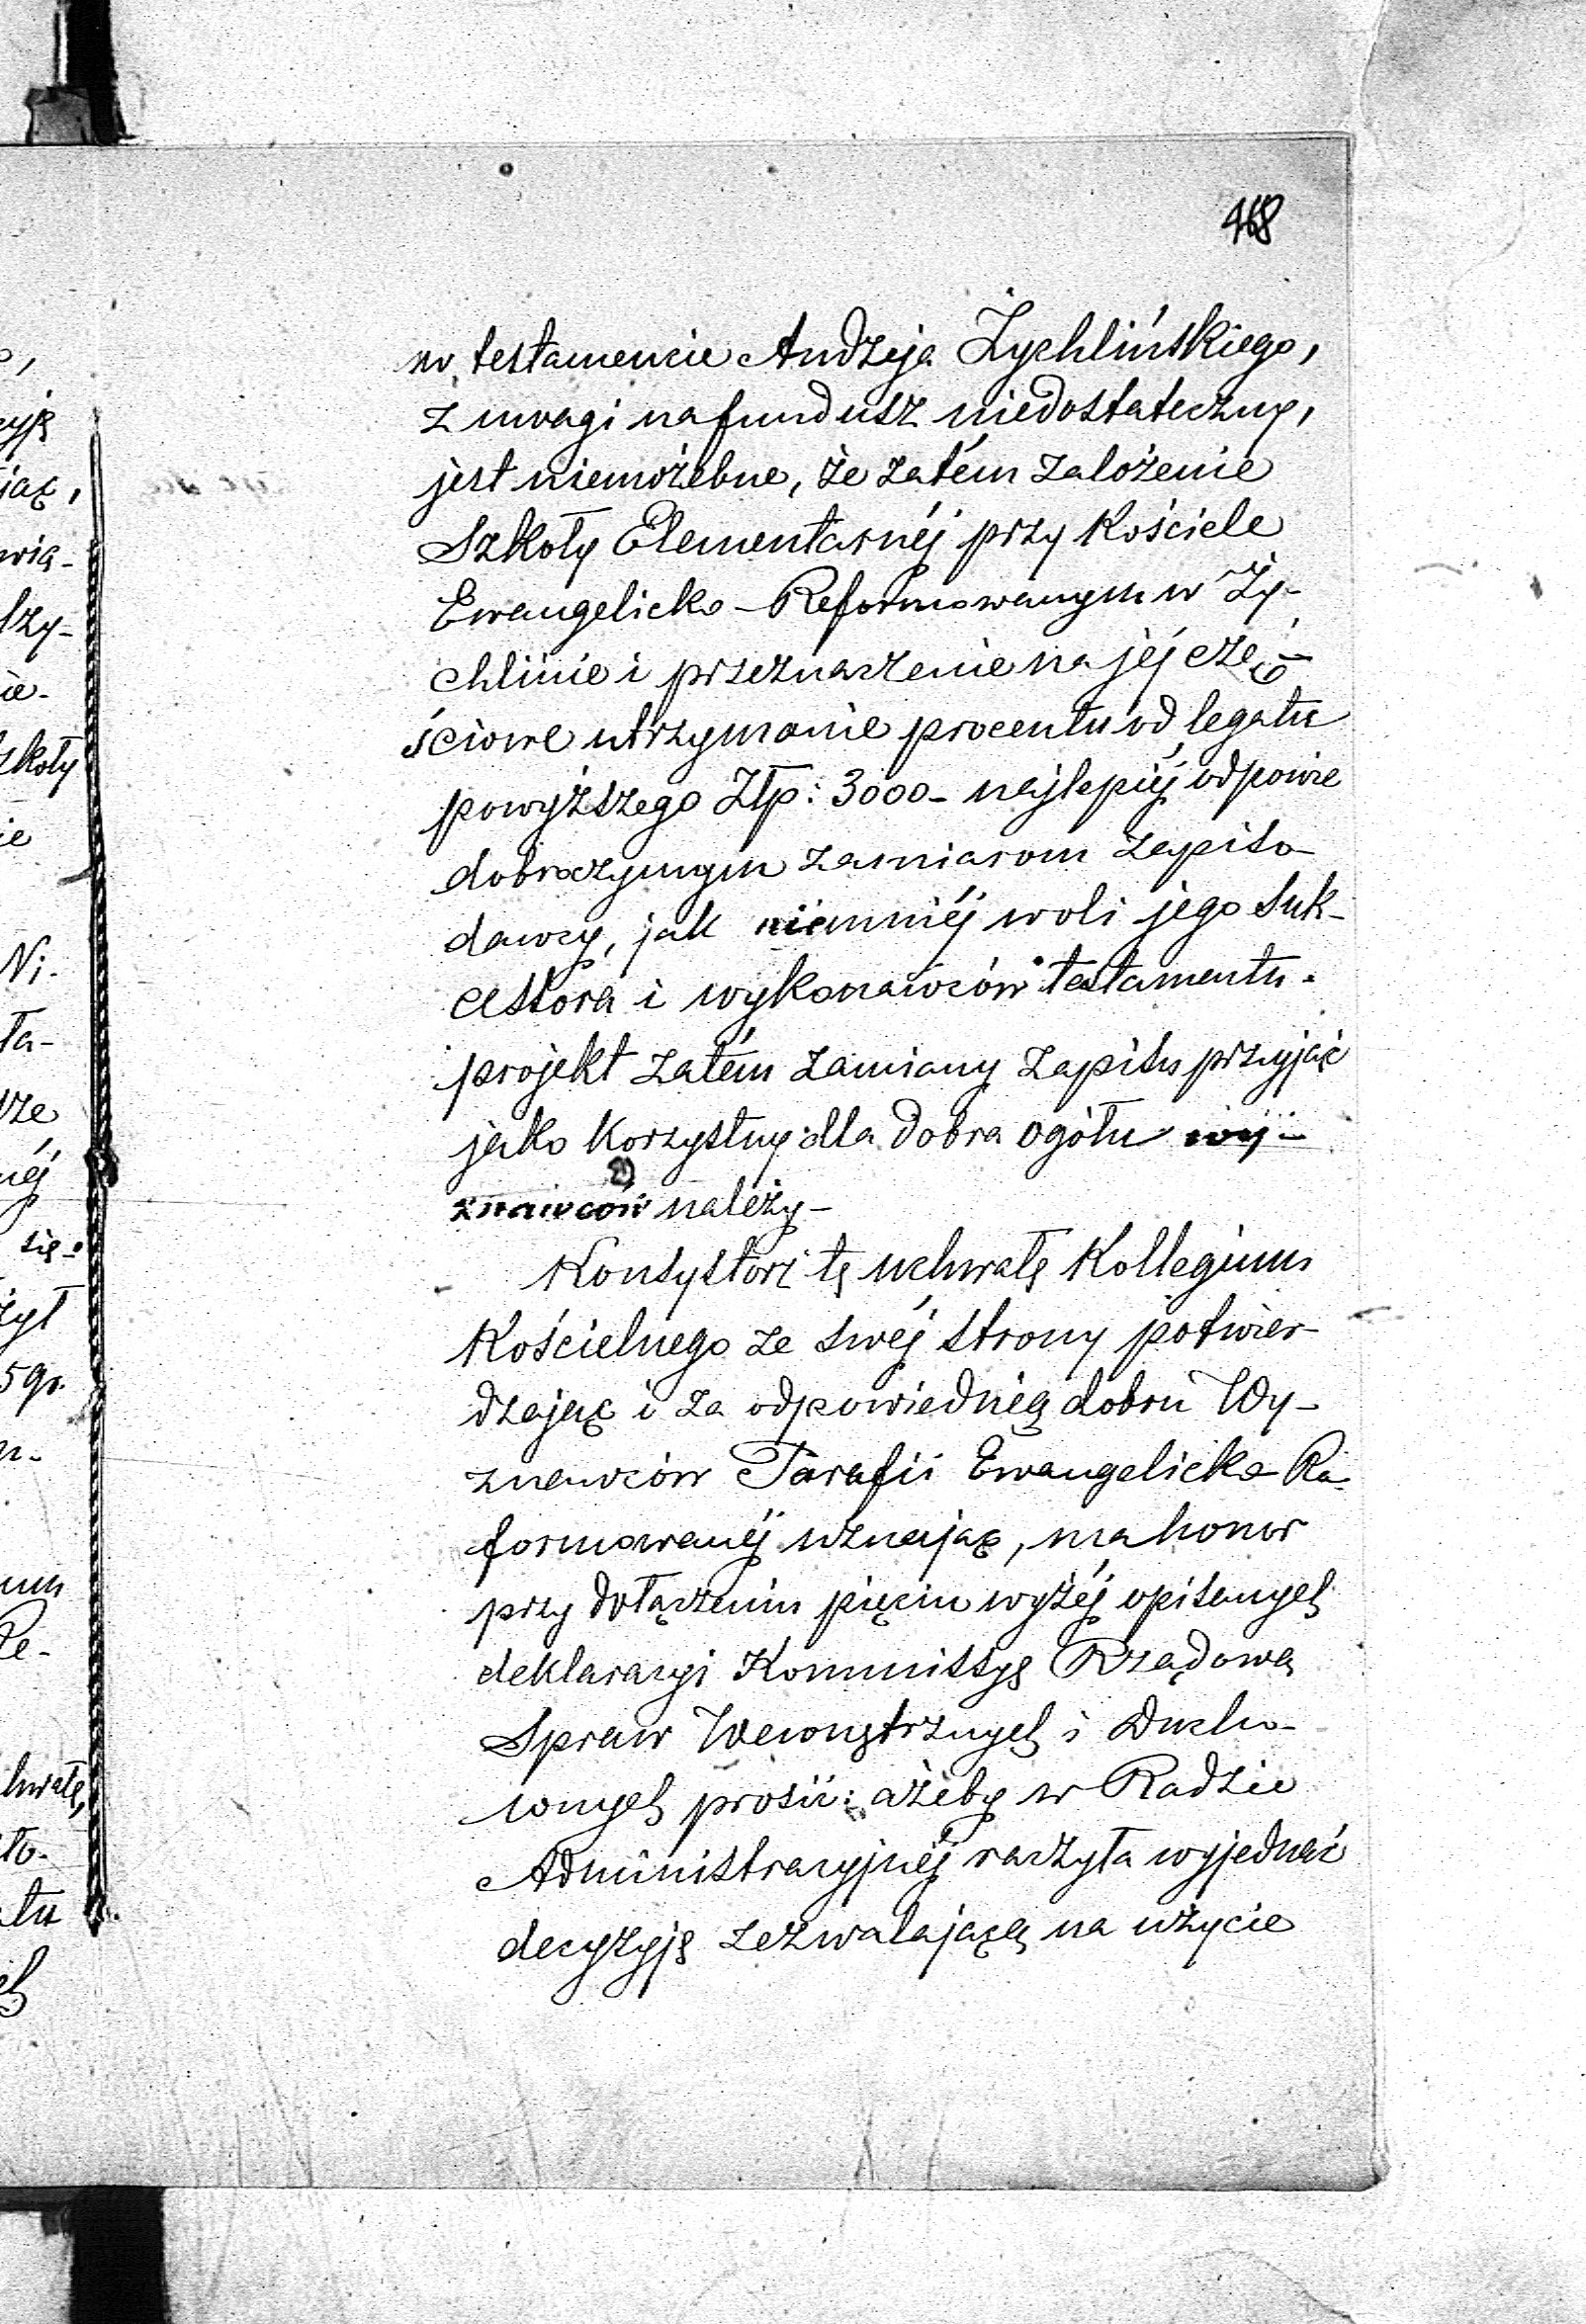 468
w testamencie Andrzeja Żychlińskiego,
z uwagi na fundusz niedostateczny,
jest niemożebne, że zatém założenie
Szkoły Elementarnéj przy Kościele
Ewangelicko-Reformowanym w Ży-
chlinie i przeznaczenie na jéj czę-
ściowe utrzymanie procentu od legatu
powyższego Złp: 3000- najlepiéj odpowie
dobroczynnym zamiarom zapiso-
dawcy, jak niemniéj woli jego Suk-
cessora i wykonawców testamentu.
projekt zatém zamiany zapisu przyjąć
jako korzystny dla dobra ogółu wy-
znawców należy-
Konsystorz tę uchwałę Kollegium
Kościelnego ze swéj strony potwier-
dzając i za odpowiednią dobru Wy-
znawców Parafii Ewangelicko-Re-
formowanéj uznając, ma honor
przy dołączeniu pięciu wyżéj opisanych
deklaracyi Kommissyę Rządową
Spraw Wewnętrznych i Ducho-
wnych prosić: ażeby w Radzie
Administracyjnéj raczyła wyjednać
decyzyję zezwalającą na użycie